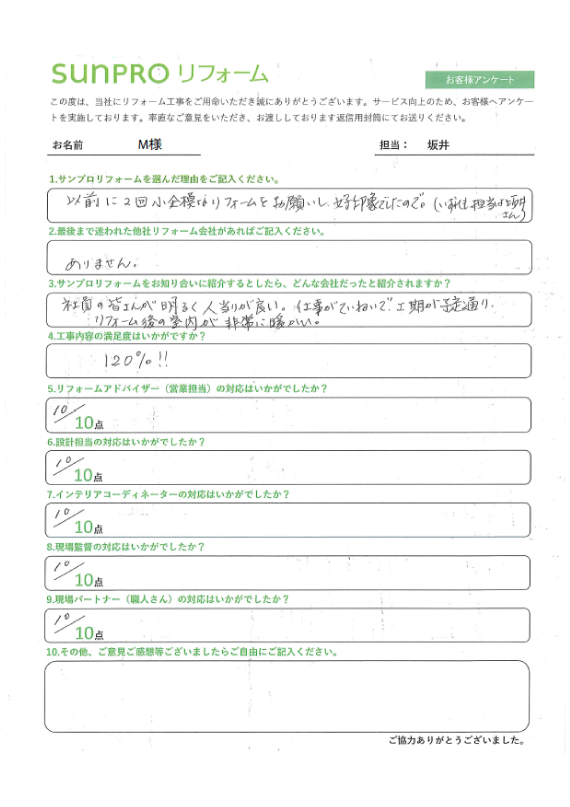 SUNPRO リフォーム
お客様アンケート
この度は、当社にリフォーム工事をご用命いただき誠にありがとうございます。サービス向上のため、お客様へアンケー
トを実施しております。率直なご意見をいただき、お渡ししております返信用封筒にてお送りください。
お名前 M様 担当： 坂井
1.サンプロリフォームを選んだ理由をご記入ください。
以前に2回小規模なリフォームをお願いし、好印象でしたので。(いずれも担当は坂井
さん)
2.最後まで迷われた他社リフォーム会社があればご記入ください。
ありません。
3.サンプロリフォームをお知り合いに紹介するとしたら、どんな会社だったと紹介されますか？
社員の皆さんが明るく人当りが良い。仕事がていねいで工期が予定通り.
リフォーム後の室内が非常に暖かい。
4.工事内容の満足度はいかがですか？
120%!!
5.リフォームアドバイザー（営業担当）の対応はいかがでしたか？
10/10点
6.設計担当の対応はいかがでしたか？
10/10点
7.インテリアコーディネーターの対応はいかがでしたか？
10/10点
8.現場監督の対応はいかがでしたか？
10/10点
9.現場パートナー（職人さん）の対応はいかがでしたか？
10/10点
10.その他、ご意見ご感想等ございましたらご自由にご記入ください。
ご協力ありがとうございました。